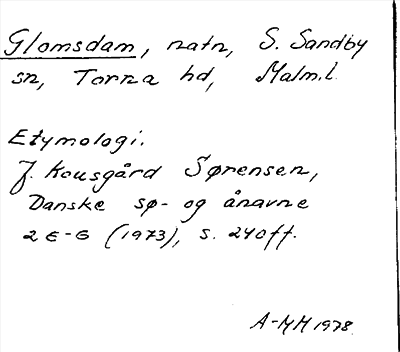 Glomsdam, natn, S. Sandby
sn, Torna hd, Malm.l.
Etymologi.
J. Kousgård Sørensen,
Danske sø- og ånavne
2 E-G (1973), s. 240ff.
A-MH 1978